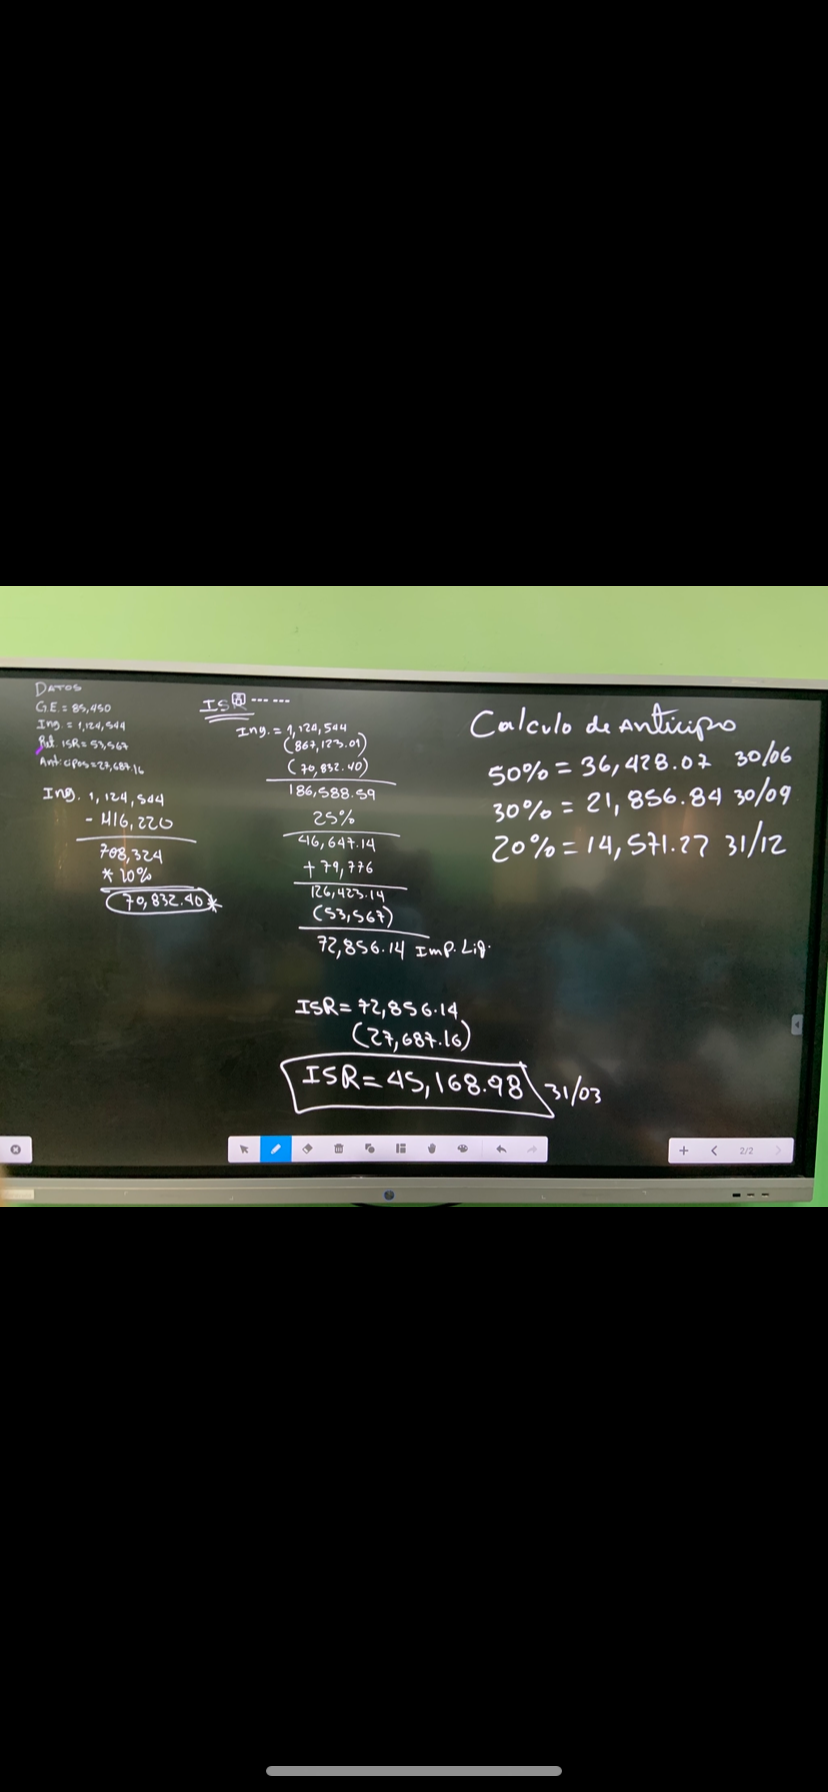 DATOS
G.E. = 85,450
Ing. = 1,124,544
Ret. ISR = 53,567
Anticipos = 27,687.16
Ing. 1,124,544
- 416,220
708,324
* 10%
70,832.40 *
ISR
Ing. = 1,124,544
(867,123.01)
(70,832.40)
186,588.59
25%
46,647.14
+ 79,776
126,423.14
(53,567)
72,856.14 Imp. Liq.
ISR = 72,856.14
(27,687.16)
ISR = 45,168.98 31/03
Calculo de Anticipo
50% = 36,428.07 30/06
30% = 21,856.84 30/09
20% = 14,571.27 31/12
2/2